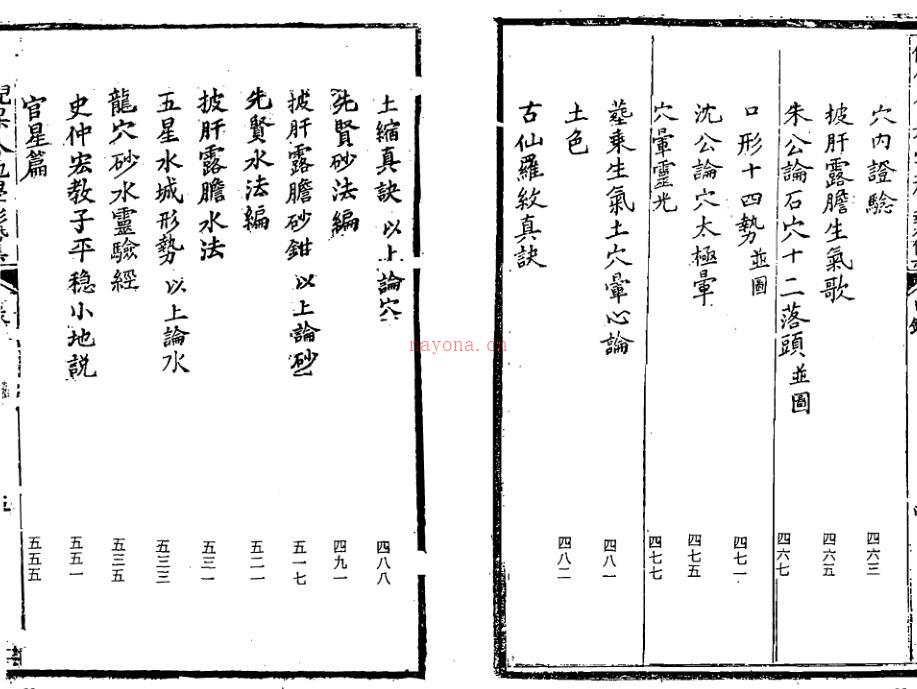 穴内證驗 四六三
披肝露膽生氣歌 四六五
朱公論石穴十二落頭並圖 四六七
口形十四勢並圖 四七一
沈公論穴太極暈 四七五
穴暈靈光 四七七
葬乘生氣土穴暈心論 四八一
土色 四八二
古仙羅紋真訣
土縮真訣 以上論穴 四八八
先賢砂法編 四九一
披肝露膽砂鉗 以上論砂 五一七
先賢水法編 五二一
披肝露膽水法 五三一
五星水城形勢 以上論水 五三三
龍穴砂水靈驗經 五三五
史仲宏教子平穩小地説 五五一
官星篇 五五五
nayona.cn